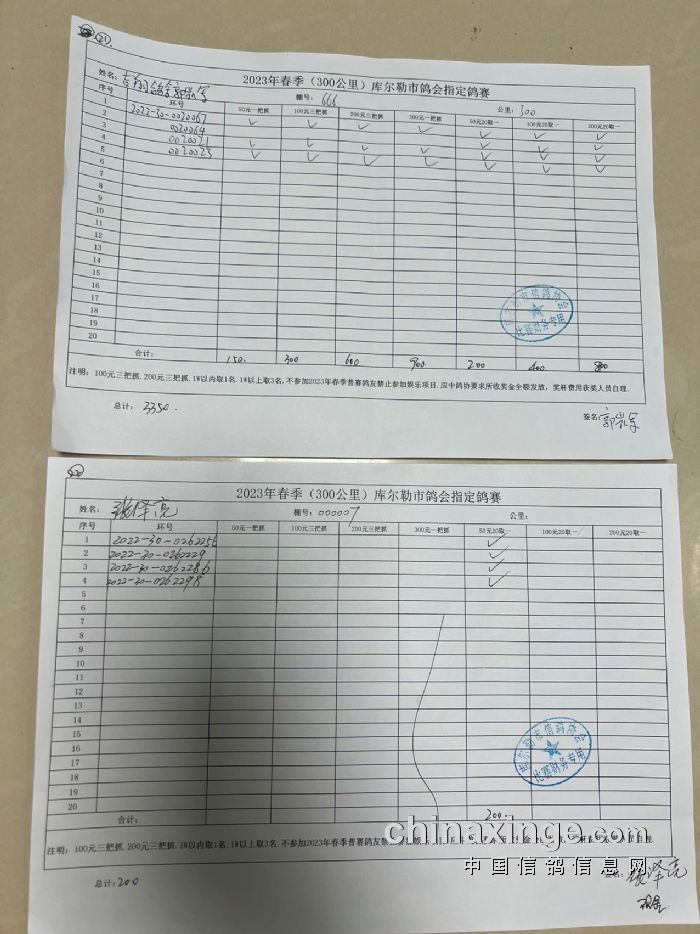 (21)
2023年春季（300公里）库尔勒市鸽会指定鸽赛
姓名：吉翔鸽舍 郭崇军 棚号：666 公里：300
序号 环号 50元一把抓 100元三把抓 200元三把抓 300元一把抓 50元20取一 100元20取一 200元20取一
1 2022-30-0020067 ✓ ✓ ✓ ✓ ✓ ✓ ✓
2 0020064 ✓ ✓ ✓
3 0020021 ✓ ✓ ✓ ✓ ✓ ✓ ✓
4 0020023 ✓ ✓ ✓ ✓ ✓ ✓ ✓
5
6
7
8
9
10
11
12
13
14
15
16
17
18
19
20
合计： 150. 300 600 900 200 400 800
库尔勒市信鸽协会
比赛财务专用
注明：100元三把抓.200元三把抓.1W以内取1名.1W以上取3名.不参加2023年春季普赛鸽友禁止参加娱乐项目.应中鸽协要求所收奖金全额发放，奖杯费用获奖人员自理.
总计：3350. 签名：郭崇军
2023年春季（300公里）库尔勒市鸽会指定鸽赛
姓名：张泽亮 棚号：000007 公里：
序号 环号 50元一把抓 100元三把抓 200元三把抓 300元一把抓 50元20取一 100元20取一 200元20取一
1 2022-30-0262256 ✓
2 2022-30-0262229 ✓
3 2022-30-0262286 ✓
4 2022-30-0262298 ✓
5
6
7
8
9
10
11
12
13
14
15
16
17
18
19
20
合计： 200.
库尔勒市信鸽协会
比赛财务专用
注明：100元三把抓.200元三把抓.1W以内取1名.1W以上取3名.不参加2023年春季普赛鸽友禁
chinaxinge.com
中国信鸽信息网
总计：200 签名：张泽亮
现金